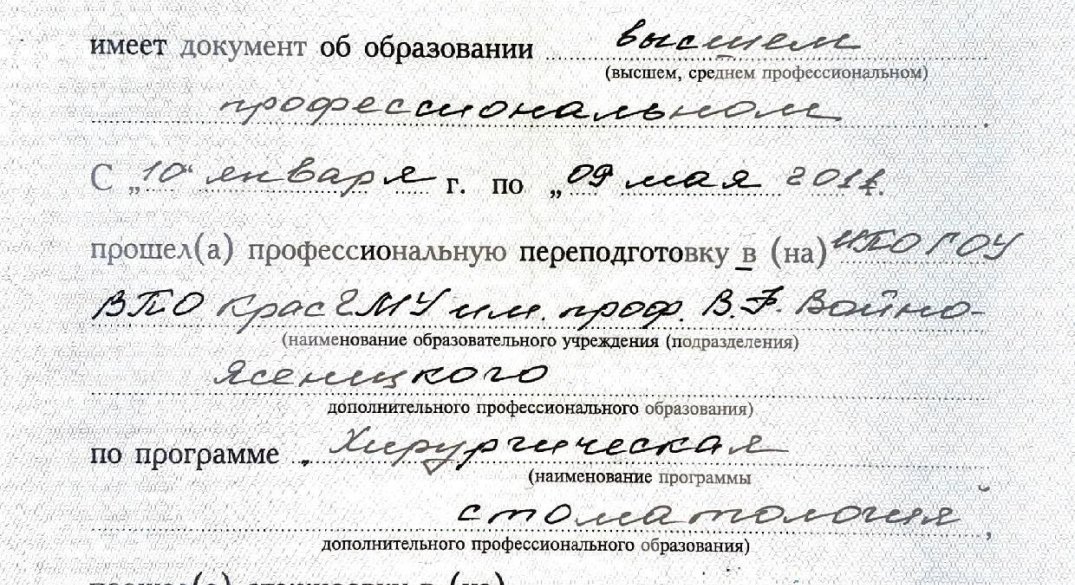 имеет документ об образовании высшем
(высшем, среднем профессиональном)
профессиональном.
С „10“ января г. по „09 мая 2011г.
прошел(а) профессиональную переподготовку в (на) ИПО ГОУ
ВПО КрасГМУ им. проф. В.Ф. Войно-
(наименование образовательного учреждения (подразделения)
Ясенецкого
дополнительного профессионального образования)
по программе „Хирургическая
(наименование программы
стоматология,
дополнительного профессионального образования)